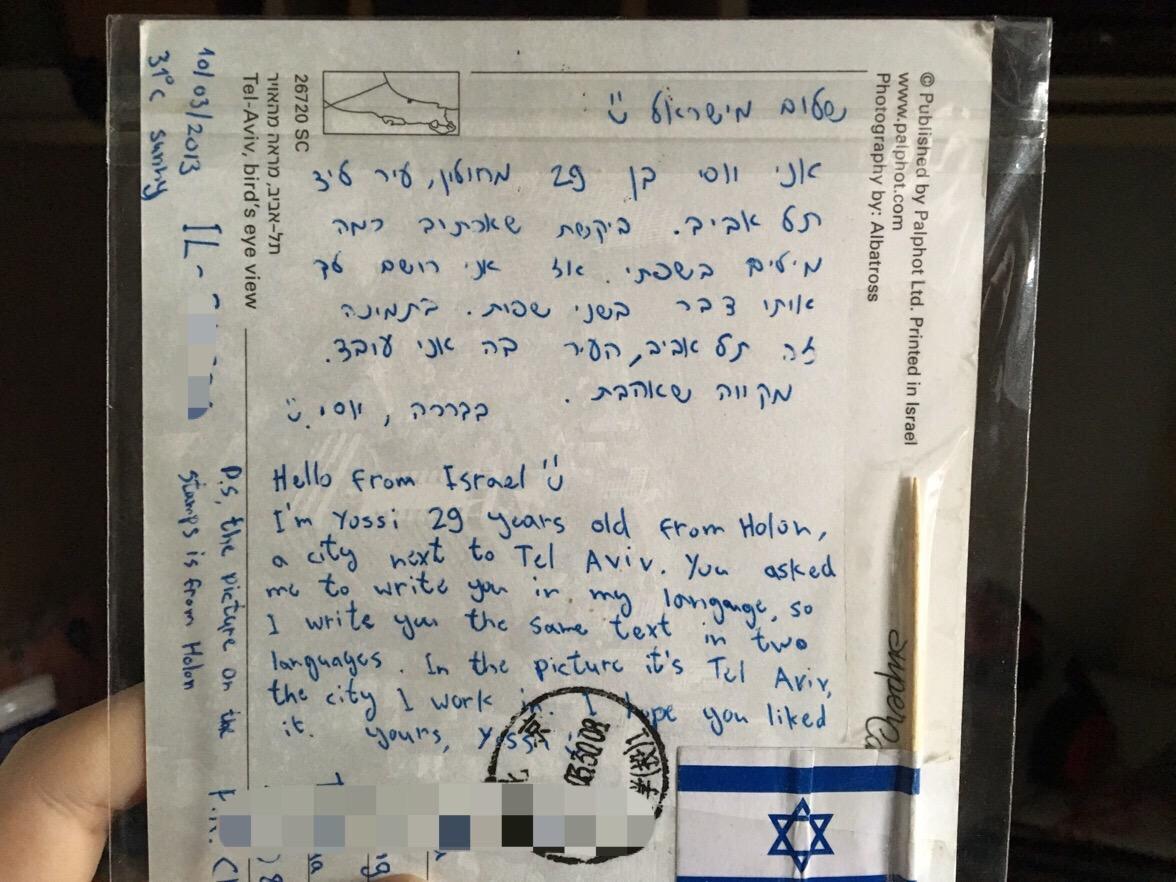 © Published by Palphot Ltd. Printed in Israel
www.palphot.com
Photography by: Albatross
26720 SC
תל-אביב, מראה מהאויר
Tel-Aviv, bird's eye view
10/03/2013
31°c sunny
IL-
שלום מישראל
אני יוסי בן 29 מחולון, עיר ליד
תל אביב. ביקשת שאכתוב כמה
מילים בשפתי אז אני רושם לך
אותו דבר בשני שפות. בתמונה
זה תל אביב, העיר בה אני עובד.
מקווה שאהבת.
בברכה, יוסי
Hello from Israel
I'm Yossi 29 years old from Holon,
a city next to Tel Aviv. You asked
me to write you in my langauge, so
I write you the same text in two
languages. In the picture it's Tel Aviv,
the city I work in. I hope you liked
it. yours, Yossi
P.S, the picture on the
stamps is from Holon